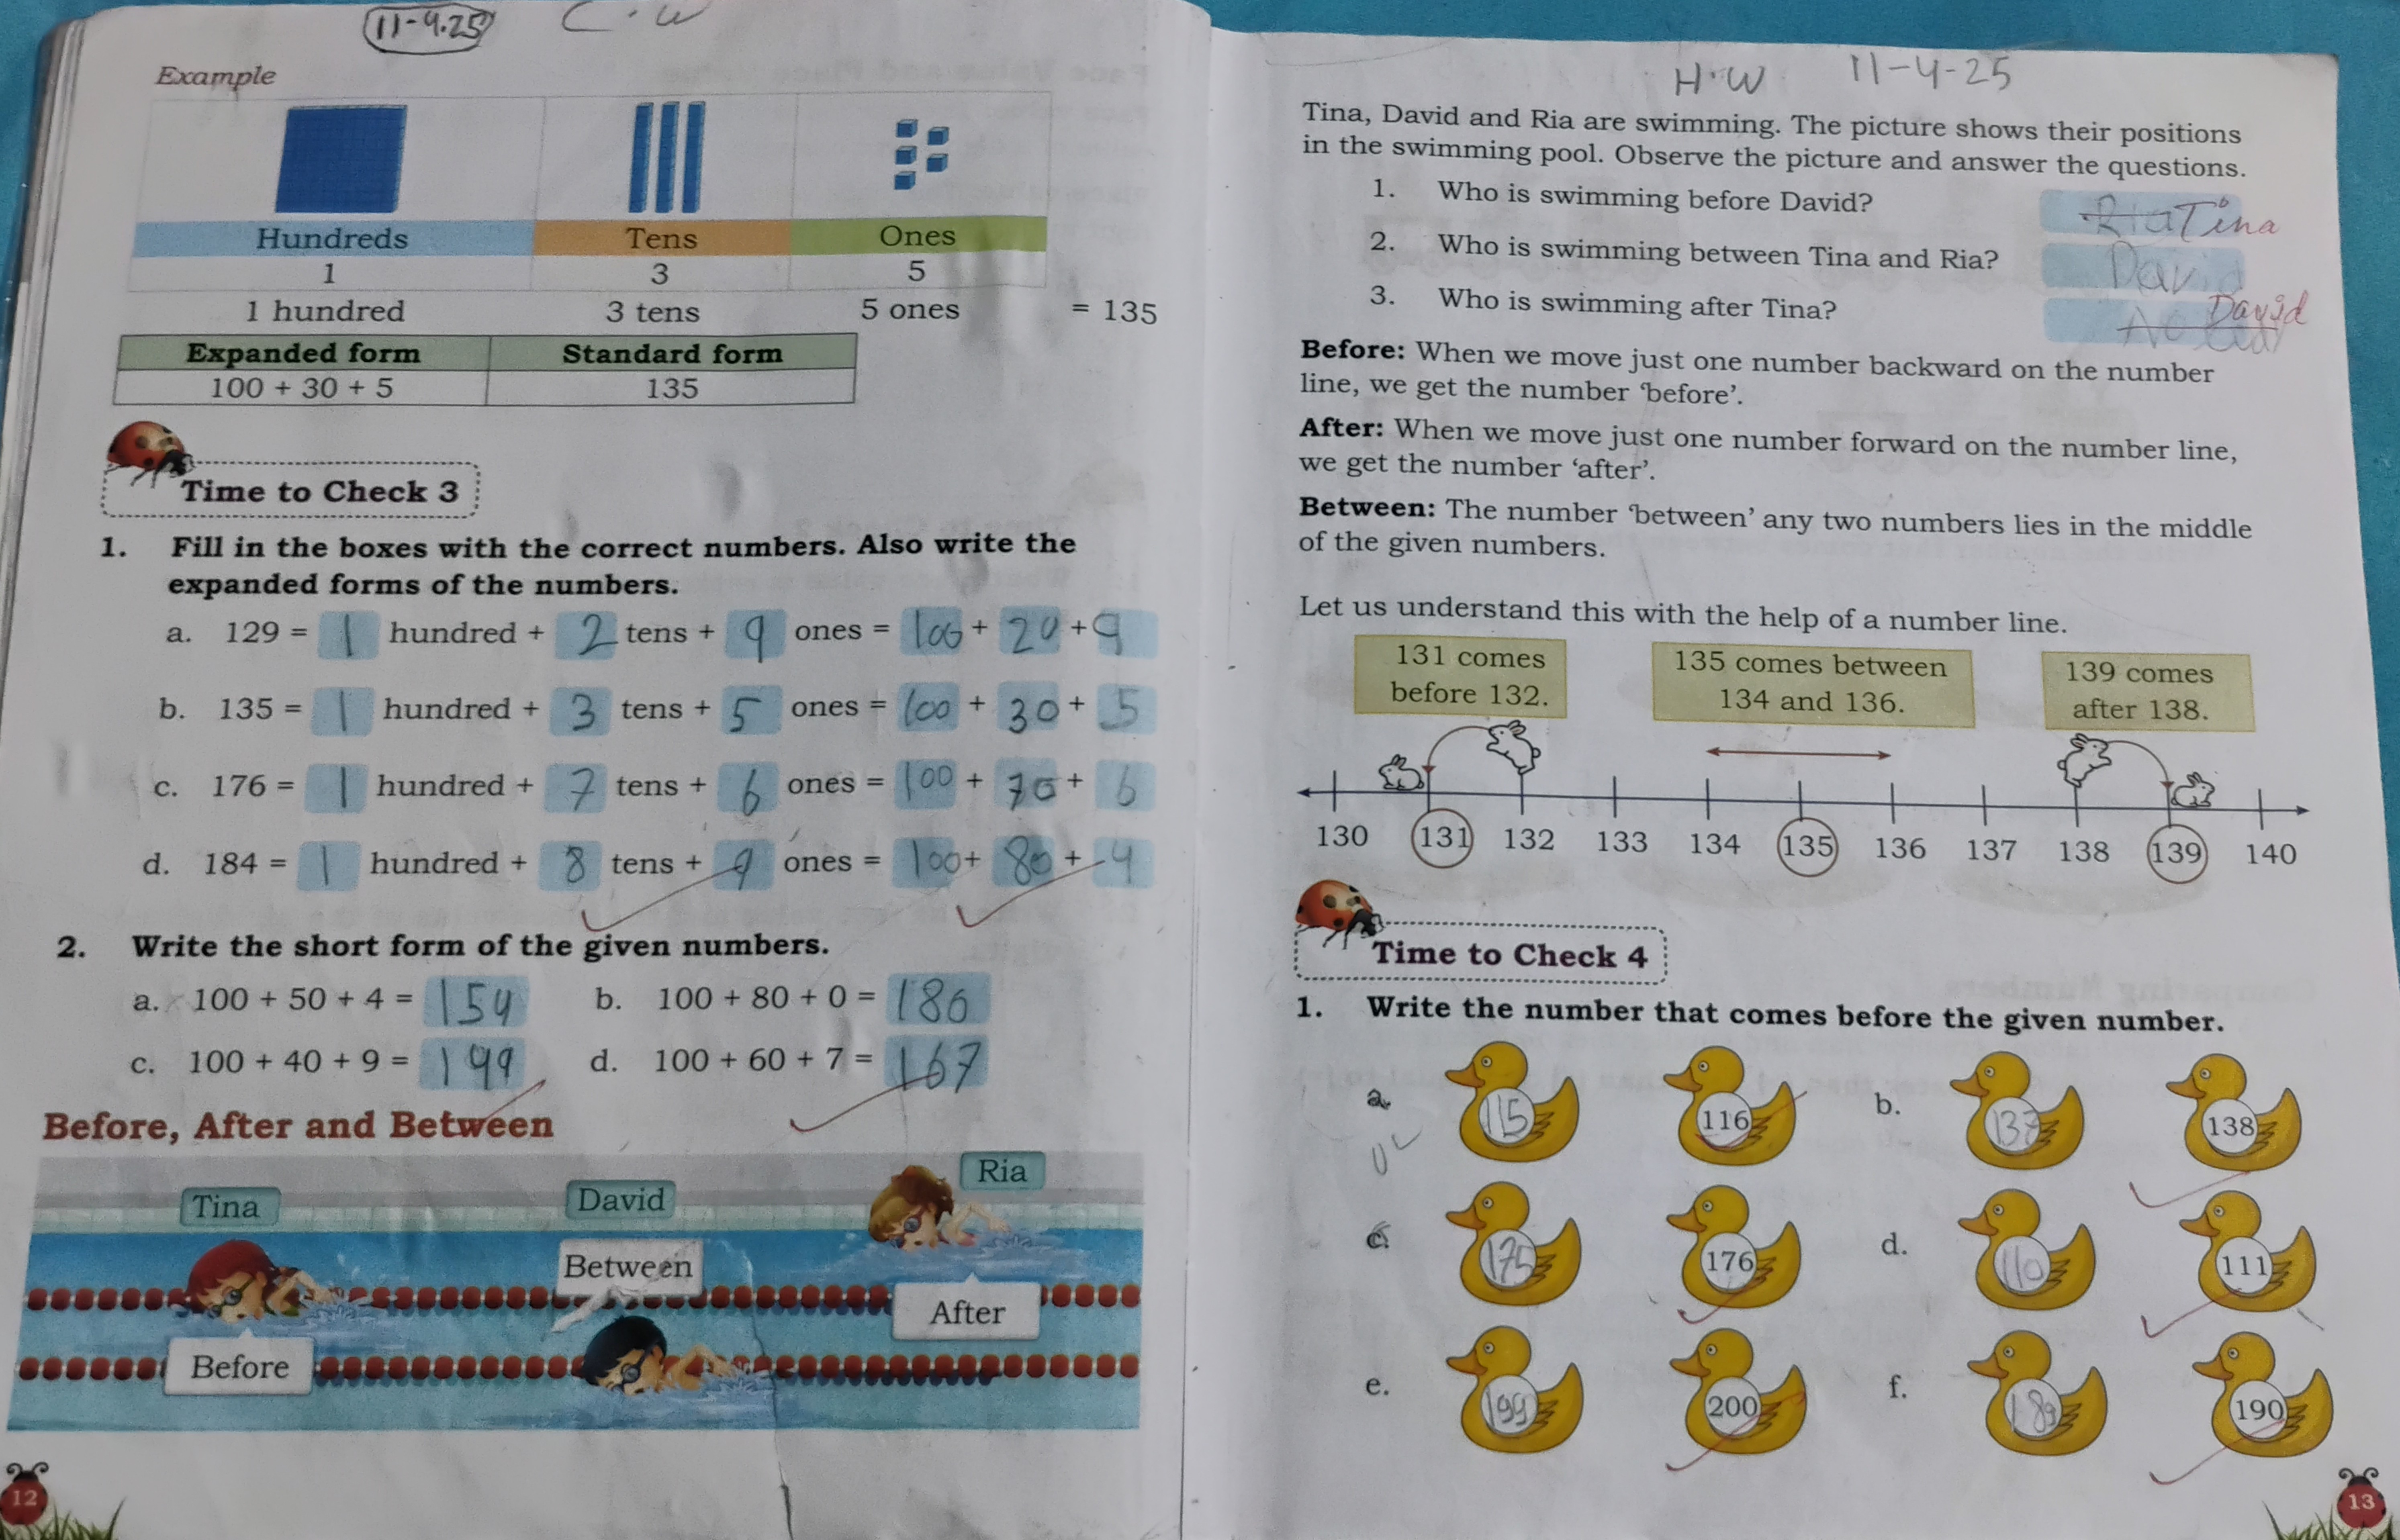 11-4.25 C.W
Example
Hundreds Tens Ones
1 3 5
1 hundred 3 tens 5 ones = 135
Expanded form Standard form
100 + 30 + 5 135
Time to Check 3
1. Fill in the boxes with the correct numbers. Also write the
expanded forms of the numbers.
a. 129 = 1 hundred + 2 tens + 9 ones = 100 + 20 + 9
b. 135 = 1 hundred + 3 tens + 5 ones = 100 + 30 + 5
c. 176 = 1 hundred + 7 tens + 6 ones = 100 + 70 + 6
d. 184 = 1 hundred + 8 tens + 4 ones = 100 + 80 + 4
2. Write the short form of the given numbers.
a. 100 + 50 + 4 = 154 b. 100 + 80 + 0 = 180
c. 100 + 40 + 9 = 149 d. 100 + 60 + 7 = 167
Before, After and Between
Tina David Ria
Between
After
Before
12
H.W 11-4-25
Tina, David and Ria are swimming. The picture shows their positions
in the swimming pool. Observe the picture and answer the questions.
1. Who is swimming before David? Ria Tina
2. Who is swimming between Tina and Ria? David
3. Who is swimming after Tina? David
Before: When we move just one number backward on the number
line, we get the number ‘before’.
After: When we move just one number forward on the number line,
we get the number ‘after’.
Between: The number ‘between’ any two numbers lies in the middle
of the given numbers.
Let us understand this with the help of a number line.
131 comes before 132.
135 comes between 134 and 136.
139 comes after 138.
130 131 132 133 134 135 136 137 138 139 140
Time to Check 4
1. Write the number that comes before the given number.
a. 115 116 b. 137 138
c. 175 176 d. 110 111
e. 199 200 f. 189 190
13